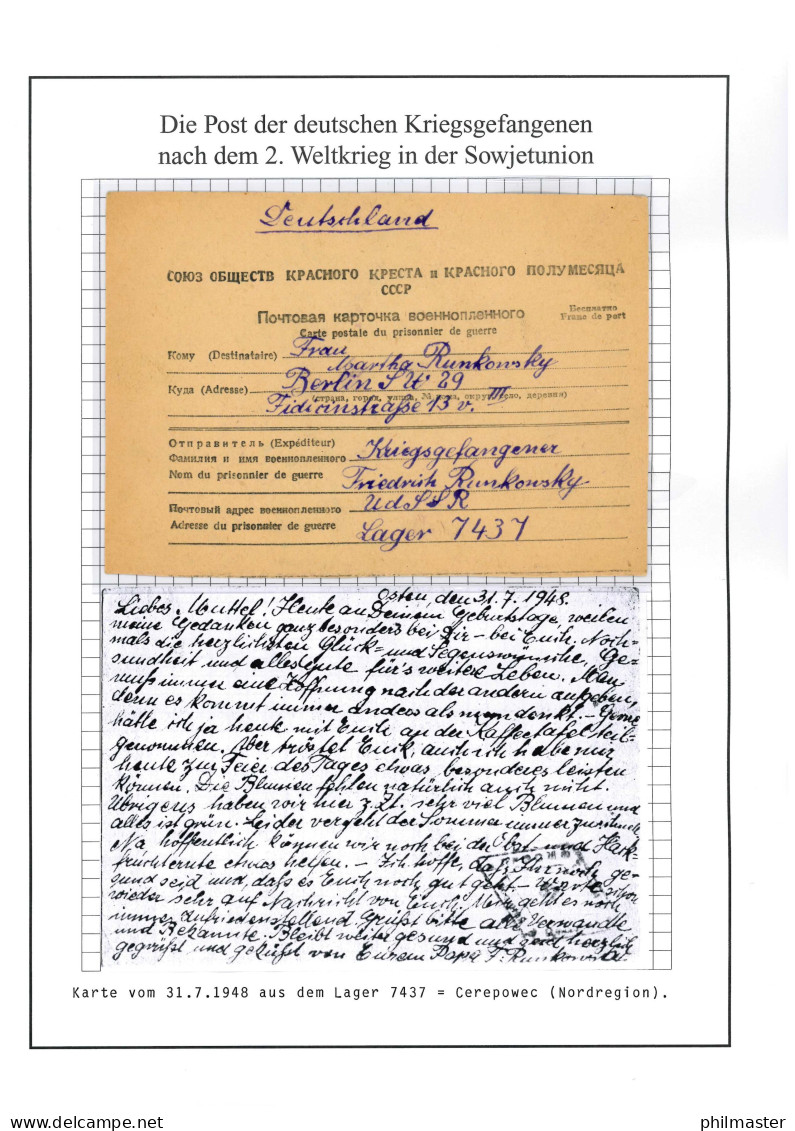 Die Post der deutschen Kriegsgefangenen
nach dem 2. Weltkrieg in der Sowjetunion
Deutschland
СОЮЗ ОБЩЕСТВ КРАСНОГО КРЕСТА и КРАСНОГО ПОЛУМЕСЯЦА
СССР
Почтовая карточка военнопленного
Carte postale du prisonnier de guerre
Бесплатно
Franc de port
Кому (Destinataire) Frau
Martha Runkowsky
Куда (Adresse) Berlin SW 29
(страна, город, улица, № дома, округ, село, деревня)
Fidicinstraße 13 v. III
Отправитель (Expéditeur)
Фамилия и имя военнопленного Kriegsgefangener
Nom du prisonnier de guerre Friedrich Runkowsky
Почтовый адрес военнопленного UdSSR
Adresse du prisonnier de guerre Lager 7437
Osten, den 31.7.1948.
Liebes Muttel! Heute an Deinem Geburtstage, weilen
meine Gedanken ganz besonders bei Dir – bei Euch. Noch-
mals die herzlichsten Glück- und Segenswünsche, Ge-
sundheit und alles Gute für's weitere Leben. Man
muß immer eine Hoffnung nach der andern aufgeben,
denn es kommt immer anders als man denkt. – Gerne
hätte ich ja heute mit Euch an der Kaffetafel teil-
genommen. Aber tröstet Euch, auch ich habe mir
heute zur Feier des Tages etwas besonderes leisten
können. Die Blumen fehlen natürlich auch nicht.
Übrigens haben wir hier z. Zt. sehr viel Blumen und
alles ist grün. Leider vergeht der Sommer immer zu schnell
Na hoffentlich können wir noch bei der Obst- und Hack-
früchternte etwas helfen. – Ich hoffe, daß Ihr noch ge-
sund seid und, daß es Euch noch gut geht. – Warte schon
wieder sehr auf Nachricht von Euch. Mir geht es noch
immer zufriedenstellend. Grüßt bitte alle Verwandte
und Bekannte. Bleibt weiter gesund und seid herzlich
gegrüßt und geküßt von Eurem Papa F. Runkowsky
Karte vom 31.7.1948 aus dem Lager 7437 = Cerepowec (Nordregion).
philmaster